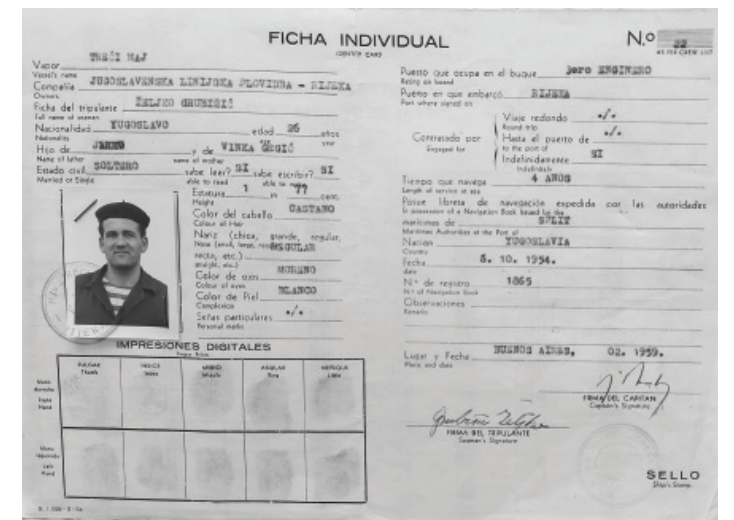 FICHA INDIVIDUAL
IDENTITY CARD
N.º 22
AS PER CREW LIST
Vapor TREĆI MAJ
Vessel's name
Compañia JUGOSLAVENSKA LINIJSKA PLOVIDBA — RIJEKA
Owners
Ficha del tripulante ŽELJKO GRUBIŠIĆ
Full name of seaman
Nacionalidad YUGOSLAVO edad 26 años
Nationality year
Hijo de y de VINKA
Name of father name of mother
Estado civil SOLTERO sabe leer? SI sabe escribir? SI
Married or Single able to read able to write
Estatura 1 m 77 cent.
Height
Color del cabello CASTANO
Colour of Hair
Nariz (chica, grande, regular,
Nose (small, large, REGULAR
recta, etc.)
straight, etc.)
Color de ojos MORENO
Colour of eyes
Color de Piel BLANCO
Complexion
Señas particulares •/•
Personal marks
IMPRESIONES DIGITALES
Finger Prints
PULGAR INDICE MEDIO ANULAR MEÑIQUE
Thumb Index Middle Ring Little
Mano
derecha
Right
Hand
Mano
izquierda
Left
Hand
Puesto que ocupa en el buque 3ero ENGINERO
Rating on board
Puerto en que embarcó RIJEKA
Port where signed on
Contratado por
Engaged for
Viaje redondo •/•
Round trip
Hasta el puerto de •/•
to the port of
Indefinidamente SI
Indefinitely
Tiempo que navega 4 AÑOS
Length of service at sea
Posee libreta de navegación expedida por las autoridades
In possession of a Navigation Book issued by the
marítimas de SPLIT
Maritime Authorities at the Port of
Nación YUGOSLAVIA
Country
Fecha 5. 10. 1954.
date
N.º de registro 1865
N.º of Navigation Book
Observaciones
Remarks
Lugar y Fecha BUENOS AIRES, 02. 1959.
Place and date
FIRMA DEL CAPITAN
Captain's Signature
FIRMA DEL TRIPULANTE
Seaman's Signature
SELLO
Ship's Stamp